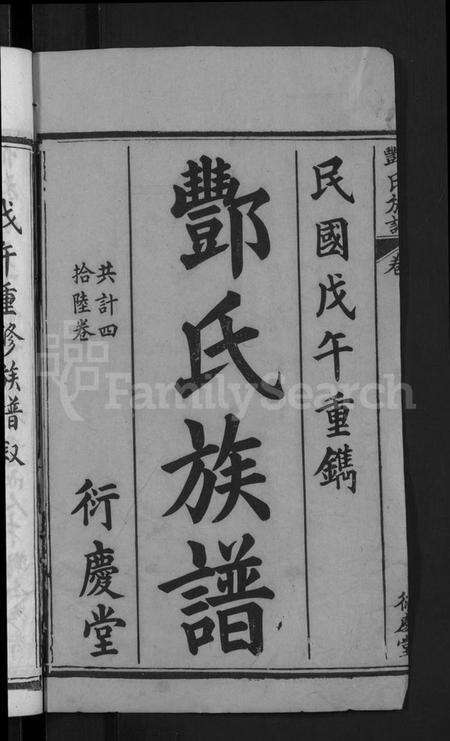 酆氏族譜
卷
衍慶堂
民國戊午重鐫
酆氏族譜
共計四
拾陸卷
衍慶堂
戊午重修族譜叙
FamilySearch